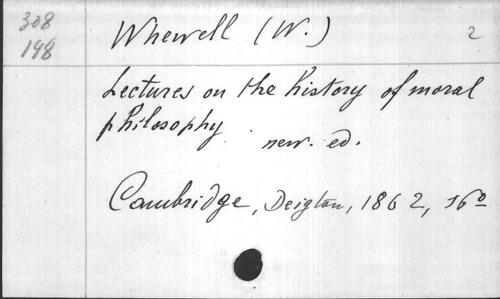 308
148
Whewell (W.) 2
Lectures on the history of moral
philosophy. new. ed.
Cambridge, Deigton, 1862, 16º